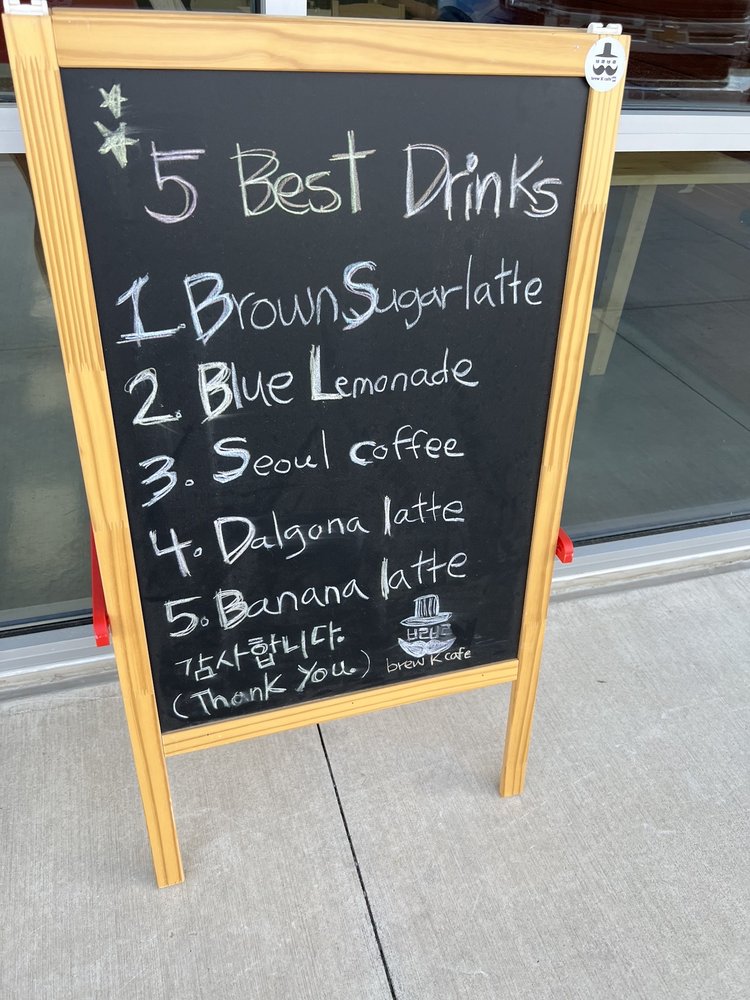 5 Best Drinks
1 Brown Sugar latte
2. Blue Lemonade
3. Seoul coffee
4. Dalgona latte
5. Banana latte
감사합니다.
(Thank You)
brew K cafe
brew K cafe